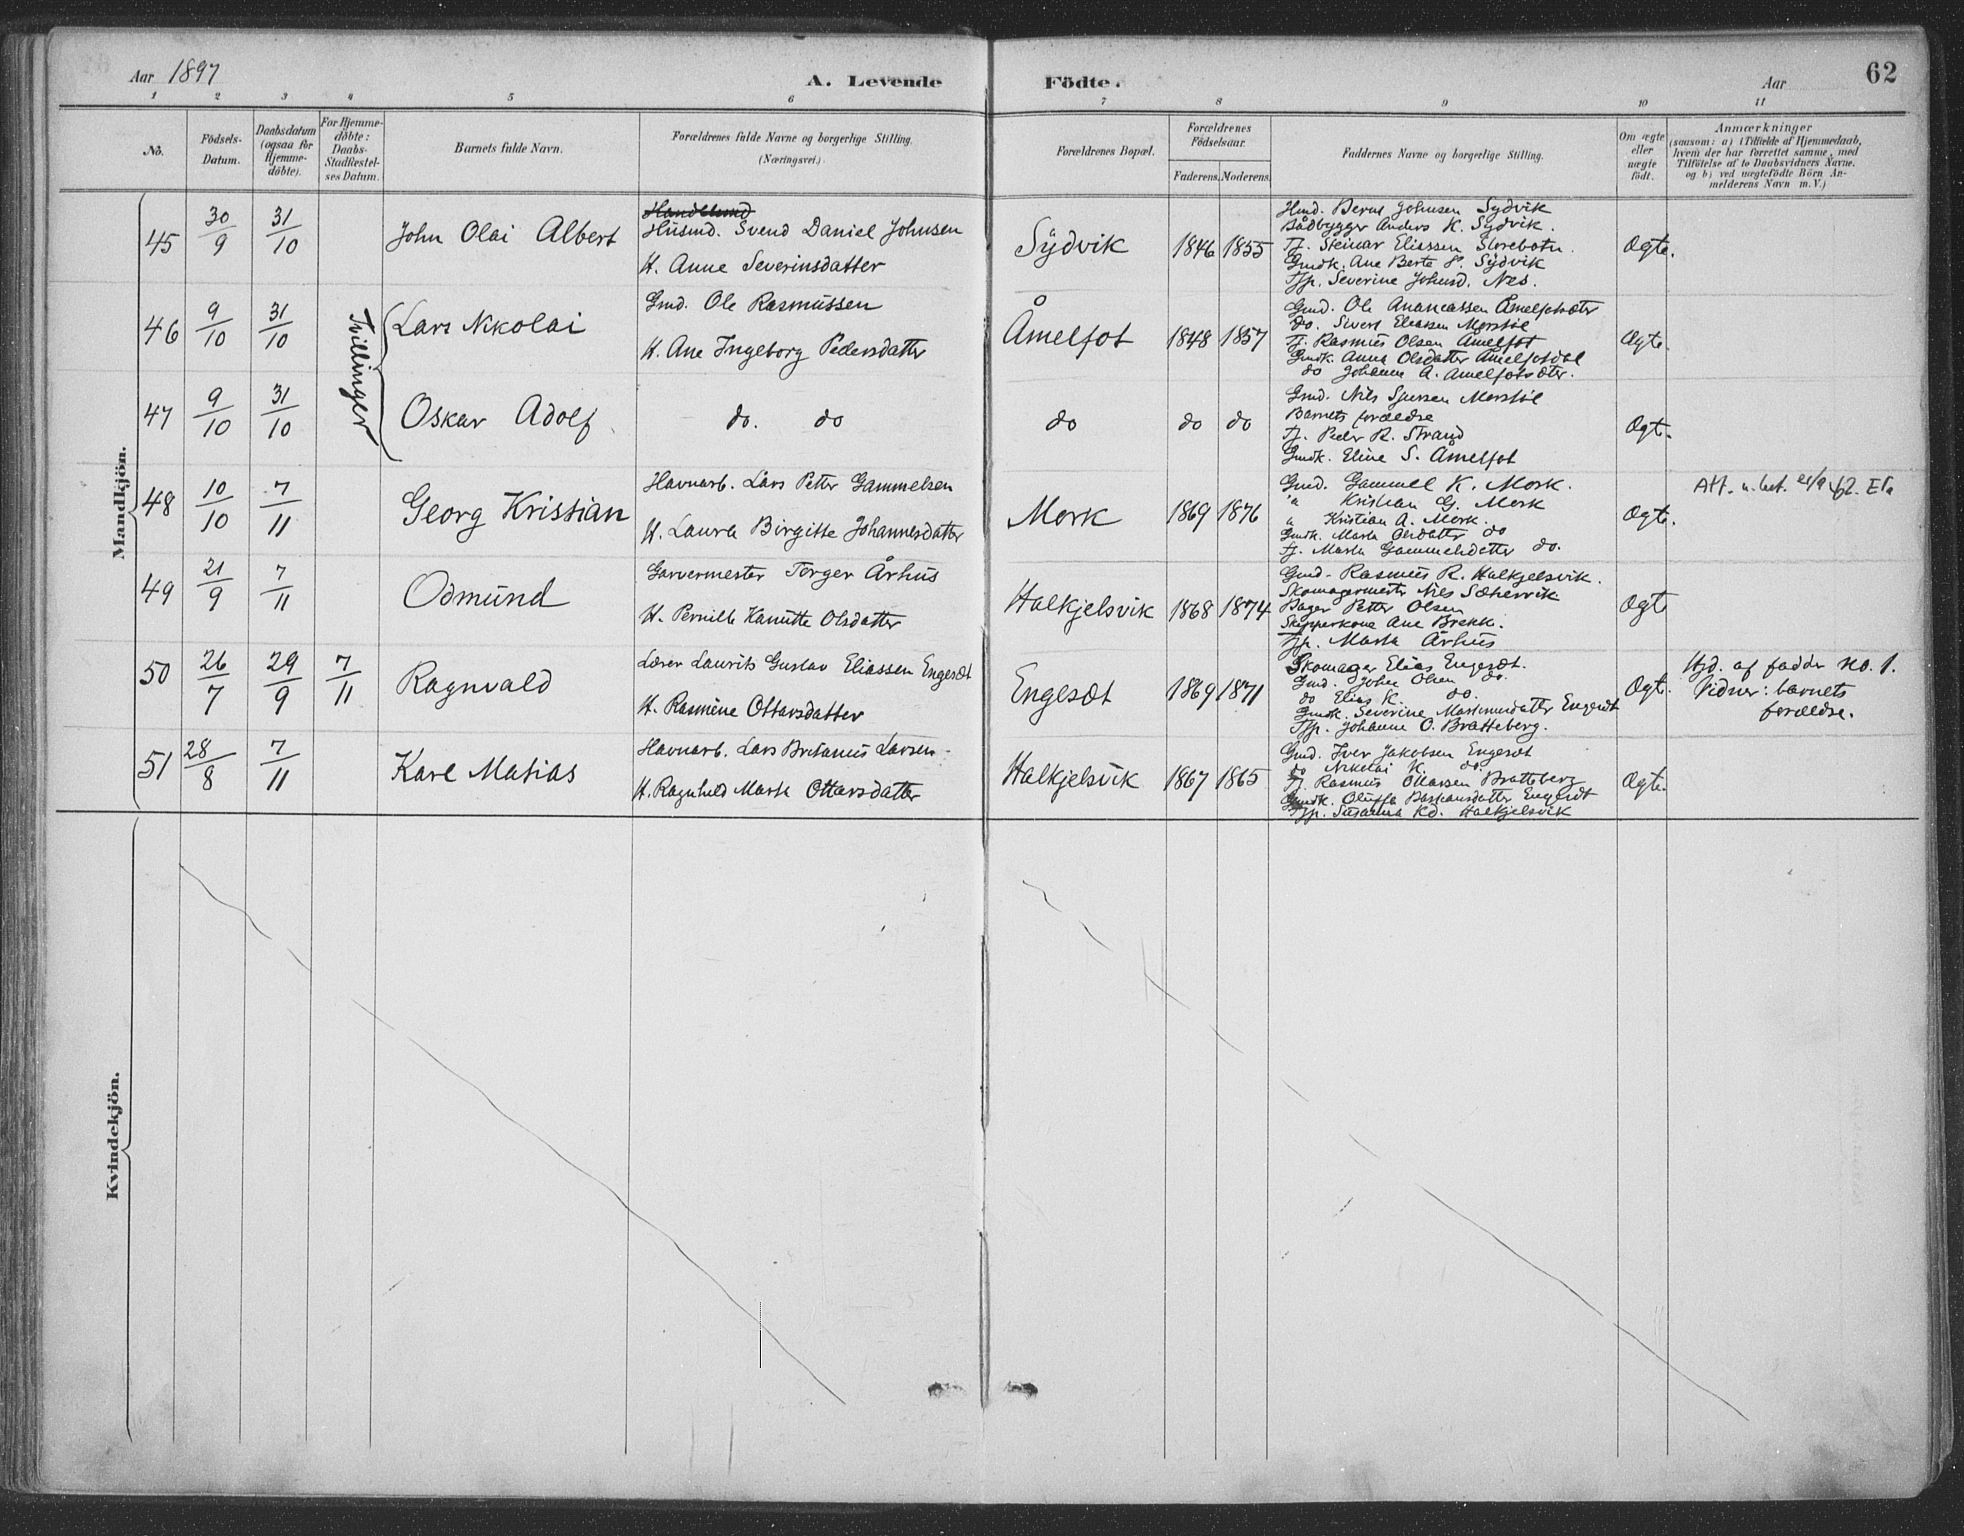 Aar 1897
A. Levende Födte.
Aar
62
1 2 3 4 5 6 7 8 9 10 11
No.
Födsels-Datum.
Daabsdatum (ogsaa for Hjemme-døbte).
For Hjemme-døbte: Daabs-Stadfæstel-ses Datum.
Barnets fulde Navn.
Forældrenes fulde Navne og borgerlige Stilling. (Næringsvei.)
Forældrenes Bopæl.
Forældrenes Födselsaar.
Faderens. Moderens.
Faddernes Navne og borgerlige Stilling.
Om ægte eller uægte födt.
Anmærkninger
(saasom: a) i Tilfælde af Hjemmedaab, hvem der har forrettet samme, med Tilföielse af to Daabsvidners Navne. og b) ved uægtefödte Börn An-melderens Navn m. V.)
Mandkjön.
45 30/9 31/10 John Olai Albert
Husmd. Svend Daniel Johnsen
H. Anne Severinsdatter
Sydvik 1846 1855
Hmd. Bernt Johnsen Sydvik
Bådbygger Anders K. Sydvik.
Tj. Steinar Eliassen Storebotn.
Gmdk. Ane Berte P. Sydvik
Tjp. Severine Johnsd. Nes.
Ægte.
46 9/10 31/10 Tvillinger Lars Nikolai
Gmd. Ole Rasmussen
H. Ane Ingeborg Pedersdatter
Åmelfot 1848 1857
Gmd. Ole Ananiassen Åmelfotsæter
do. Sivert Eliassen Morstøl
Tj. Rasmus Olsen Åmelfot
Gmdk. Anna Olsdatter Åmelfotdal
do Johanne A. Åmelfotsæter.
Ægte.
47 9/10 31/10 Oskar Adolf
do. do
do do do
Gmd. Nils Sjursen Morstøl
Barnets forældre
Tj. Peder R. Strand
Gmdk. Eline S. Åmelfot
Ægt.
48 10/10 7/11 Georg Kristian
Havnarb. Lars Peter Gammelsen
H. Laura Birgitte Johannesdatter
Mork 1869 1876
Gmd. Gammel K. Mork.
" Kristian G. Mork
" Kristian A. Mork.
Gmdk. Marta Olsdatter do
Tj. Marta Gammelsdatter do.
Ægte.
49 21/9 7/11 Odmund
Garvermester Torger Århus
H. Pernille Kanutte Olsdatter
Halkjelsvik 1868 1874
Gmd. Rasmus R. Halkjelsvik.
Skomagermester Nils Sætervik
Bager Petter Olsen
Skipperkone Ane Brekk.
Tjp. Marta Århus
Ægt
50 26/7 29/9 7/11 Ragnvald
Lærer Laurits Gustav Eliassen Engesæt
H. Rasmine Ottarsdatter
Engesæt 1869 1871
Skomager Elias Engesæt.
Gmd. John Olsen do.
do Elias K. do.
Gmdk. Severine Martinusdatter Engesæt
Tjp. Johanne O. Bratteberg.
Ægt.
Hjd. af fadder no. 1.
Vidner: barnets
forældre.
51 28/8 7/11 Karl Matias
Havnarb. Lars Britanus Larsen
H. Ragnhild Marta Ottarsdatter
Halkjelsvik 1867 1865
Gmd. Iver Jakobsen Engesæt
do Nikolai K. do.
Tj. Rasmus Ottarsen Bratteberg
Gmdk. Oluffa Bastiansdatter Engesæt
Tjp. Susanna Kd. Halkjelsvik
Ægte.
Kvindekjön.